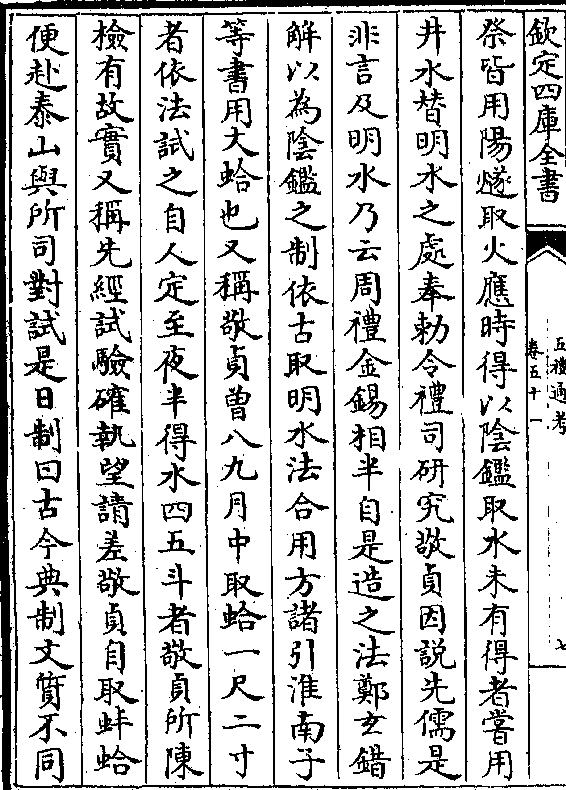 欽定四庫全書
五禮通考
卷五十一
七
祭皆用陽燧取火應時得以陰鑑取水未有得者嘗用
井水替明水之處奉勅令禮司研究敬貞因説先儒是
非言及明水乃云周禮金錫相半自是造之法鄭玄錯
解以為陰鑑之制依古取明水法合用方諸引淮南子
等書用大蛤也又稱敬貞曾八九月中取蛤一尺二寸
者依法試之自人定至夜半得水四五斗者敬貞所陳
檢有故實又稱先經試驗確執望請差敬貞自取蚌蛤
便赴泰山與所司對試是日制曰古今典制文質不同